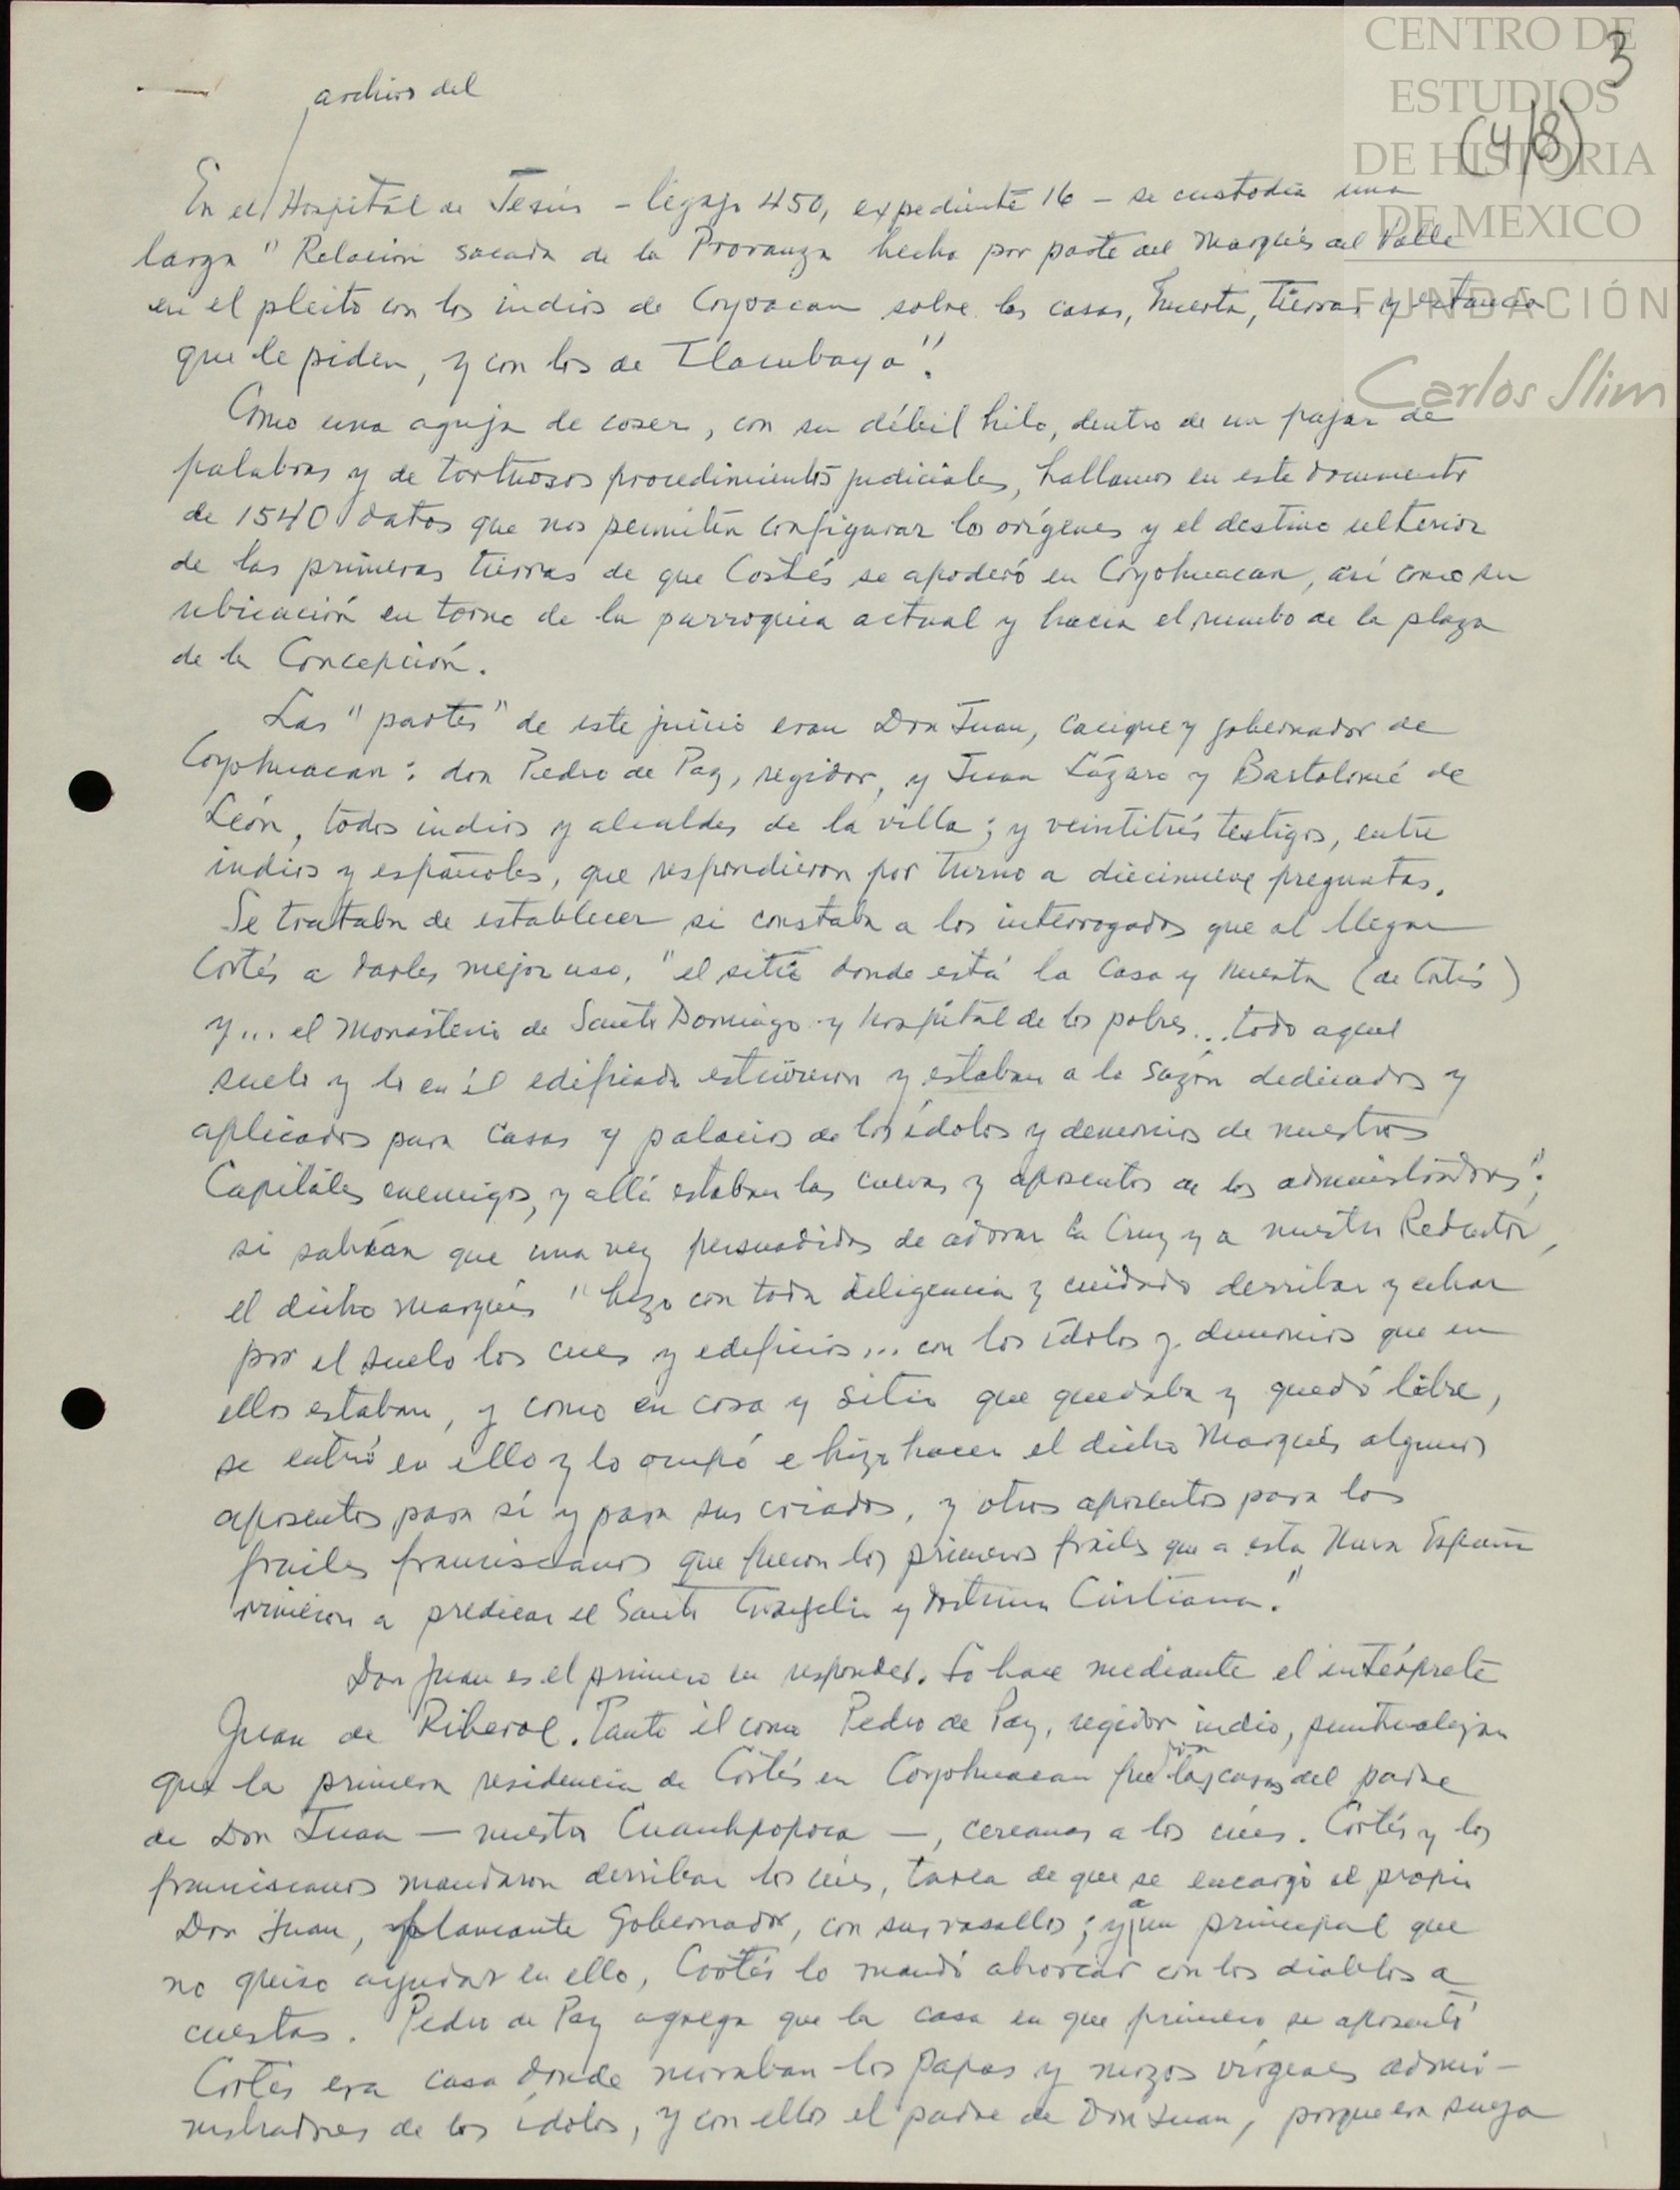 CENTRO DE
ESTUDIOS
DE HISTORIA
DE MEXICO
FUNDACIÓN
Carlos Slim
3
(4/8)
archivo del
En el Hospital de Jesús – legajo 450, expediente 16 – se custodia una
larga "Relación sacada de la Provanza hecha por parte del Marqués del Valle
en el pleito con los indios de Coyoacan sobre las casas, huerta, tierras y estancia
que le piden, y con los de Tlacubaya".
Como una aguja de coser, con su débil hilo, dentro de un pajar de
palabras y de tortuosos procedimientos judiciales, hallamos en este documento
de 1540 datos que nos permiten configurar los orígenes y el destino ulterior
de las primeras tierras de que Cortés se apoderó en Coyohuacan, así como su
ubicación en torno de la parroquia actual y hacia el rumbo de la plaza
de la Concepción.
Las "partes" de este juicio eran Don Juan, cacique y gobernador de
Coyohuacan: don Pedro de Paz, regidor, y Juan Lázaro y Bartolomé de
León, todos indios y alcaldes de la villa; y veintitrés testigos, entre
indios y españoles, que respondieron por turno a diecinueve preguntas.
Se trataba de establecer si constaba a los interrogados que al llegar
Cortés a darles mejor uso, "el sitio donde está la Casa y huerta (de Cortés)
y... el Monasterio de Santo Domingo y hospital de los pobres... todo aquel
suelo y lo en él edificado estuvieron y estaban a la sazón dedicados y
aplicados para casas y palacios de los ídolos y demonios de nuestros
Capitales enemigos, y allí estaban las cuevas y aposentos de los administradores";
si sabían que una vez persuadidos de adorar la Cruz y a nuestro Redentor,
el dicho marqués "hizo con toda diligencia y cuidado derribar y echar
por el suelo los cues y edificios... con los ídolos y demonios que en
ellos estaban, y como en cosa y sitio que quedaba y quedó libre,
se entró en ello y lo ocupó e hizo hacer el dicho Marqués algunos
aposentos para sí y para sus criados, y otros aposentos para los
frailes franciscanos que fueron los primeros frailes que a esta Nueva España
vinieron a predicar el Santo Evangelio y doctrina Cristiana."
Don Juan es el primero en responder. Lo hace mediante el intérprete
Juan de Riberol. Tanto él como Pedro de Paz, regidor indio, puntualizan
que la primera residencia de Cortés en Coyohuacan las casas del padre
de Don Juan — nuestro Cuauhpopoca —, cercanas a los cúes. Cortés y los
franciscanos mandaron derribar los cúes, tarea de que se encargó el propio
Don Juan, flamante Gobernador, con sus vasallos; y a un principal que
no quiso ayudar en ello, Cortés lo mandó ahorcar con los diablos a
cuestas. Pedro de Paz agrega que la casa en que primero se aposentó
Cortés era casa donde moraban los papas y mozos vírgenes admi-
nistradores de los ídolos, y con ellos el padre de Don Juan, porque era suya